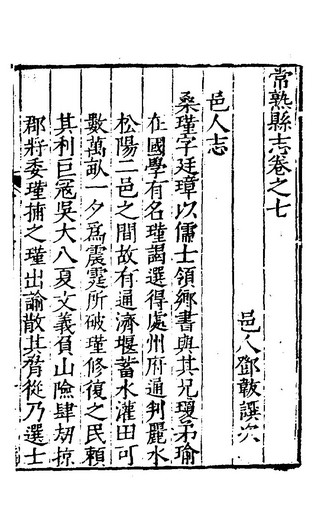 常熟縣志卷之七
邑人鄧韍譔次
邑人志
桑瑾字廷璋以儒士領鄉書與其兄瓊弟瑜
在國學有名瑾謁選得處州府通判麗水
松陽二邑之間故有通濟堰蓄水灌田可
數萬畝一夕為震霆所破瑾修復之民賴
其利巨冦吳大八夏文義負山險肆刼掠
郡將委瑾捕之瑾出諭散其脅從乃選士